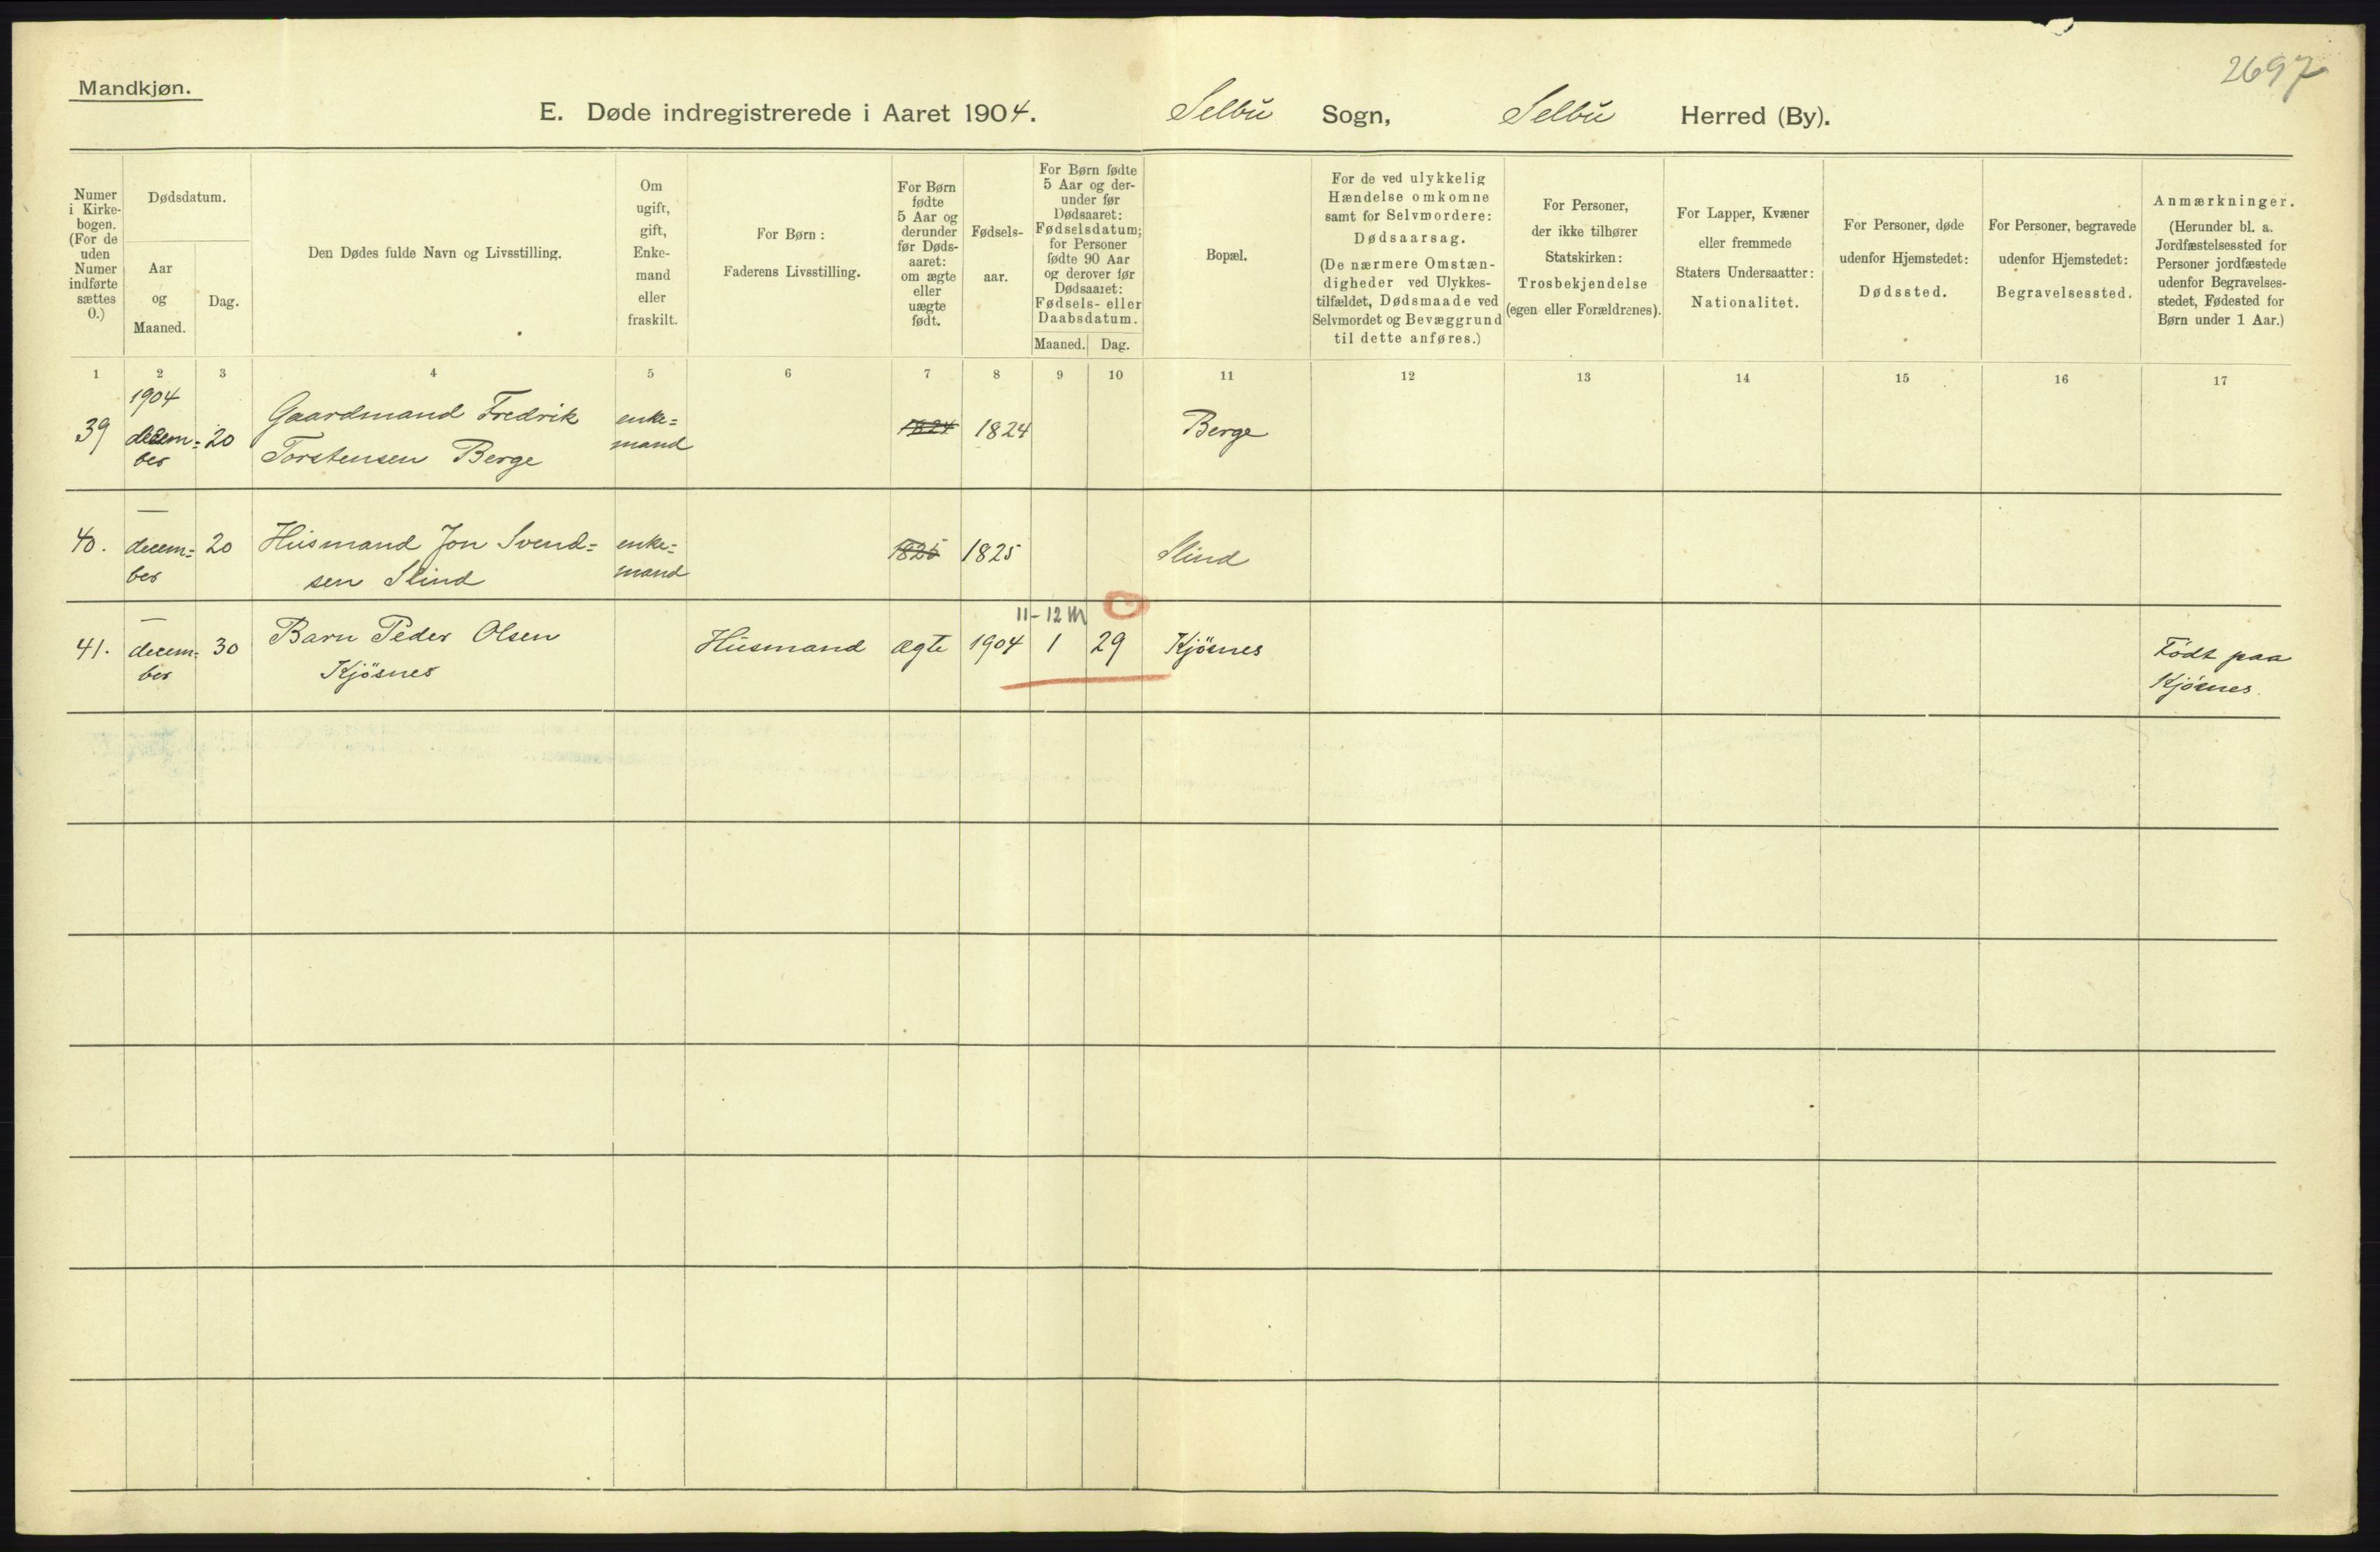 2697
Mandkjøn.
E. Døde indregistrerede i Aaret 1904. Selbu Sogn, Selbu Herred (By).
Numer
i Kirke-
bogen.
(For de
uden
Numer
indførte
sættes
0.)
Dødsdatum.
Aar
og
Maaned.
Dag.
Den Dødes fulde Navn og Livsstilling.
Om
ugift,
gift,
Enke-
mand
eller
fraskilt.
For Børn:
Faderens Livsstilling.
For Børn
fødte
5 Aar og
derunder
før Døds-
aaret:
om ægte
eller
uægte
født.
Fødsels-
aar.
For Børn fødte
5 Aar og der-
under før
Dødsaaret:
Fødselsdatum;
for Personer
fødte 90 Aar
og derover før
Dødsaaret:
Fødsels- eller
Daabsdatum.
Maaned. Dag.
Bopæl.
For de ved ulykkelig
Hændelse omkomne
samt for Selvmordere:
Dødsaarsag.
(De nærmere Omstæn-
digheder ved Ulykkes-
tilfældet, Dødsmaade ved
Selvmordet og Bevæggrund
til dette anføres.)
For Personer,
der ikke tilhører
Statskirken:
Trosbekjendelse
(egen eller Forældrenes).
For Lapper, Kvæner
eller fremmede
Staters Undersaatter:
Nationalitet.
For Personer, døde
udenfor Hjemstedet:
Dødssted.
For Personer, begravede
udenfor Hjemstedet:
Begravelsessted.
Anmærkninger.
(Herunder bl. a.
Jordfæstelsessted for
Personer jordfæstede
udenfor Begravelses-
stedet, Fødested for
Børn under 1 Aar.)
1 2 3 4 5 6 7 8 9 10 11 12 13 14 15 16 17
1904
39 decem= 20 Gaardmand Fredrik enke= 1824 1824 Berge
ber Torstensen Berge mand
—
40. decem= 20 Husmand Jon Svend= enke= 1825 1825 Slind
ber sen Slind mand
— 11-12 M
41. decem= 30 Barn Peder Olsen Husmand ægte 1904 1 29 Kjösnes Födt paa
ber Kjösnes Kjösnes.